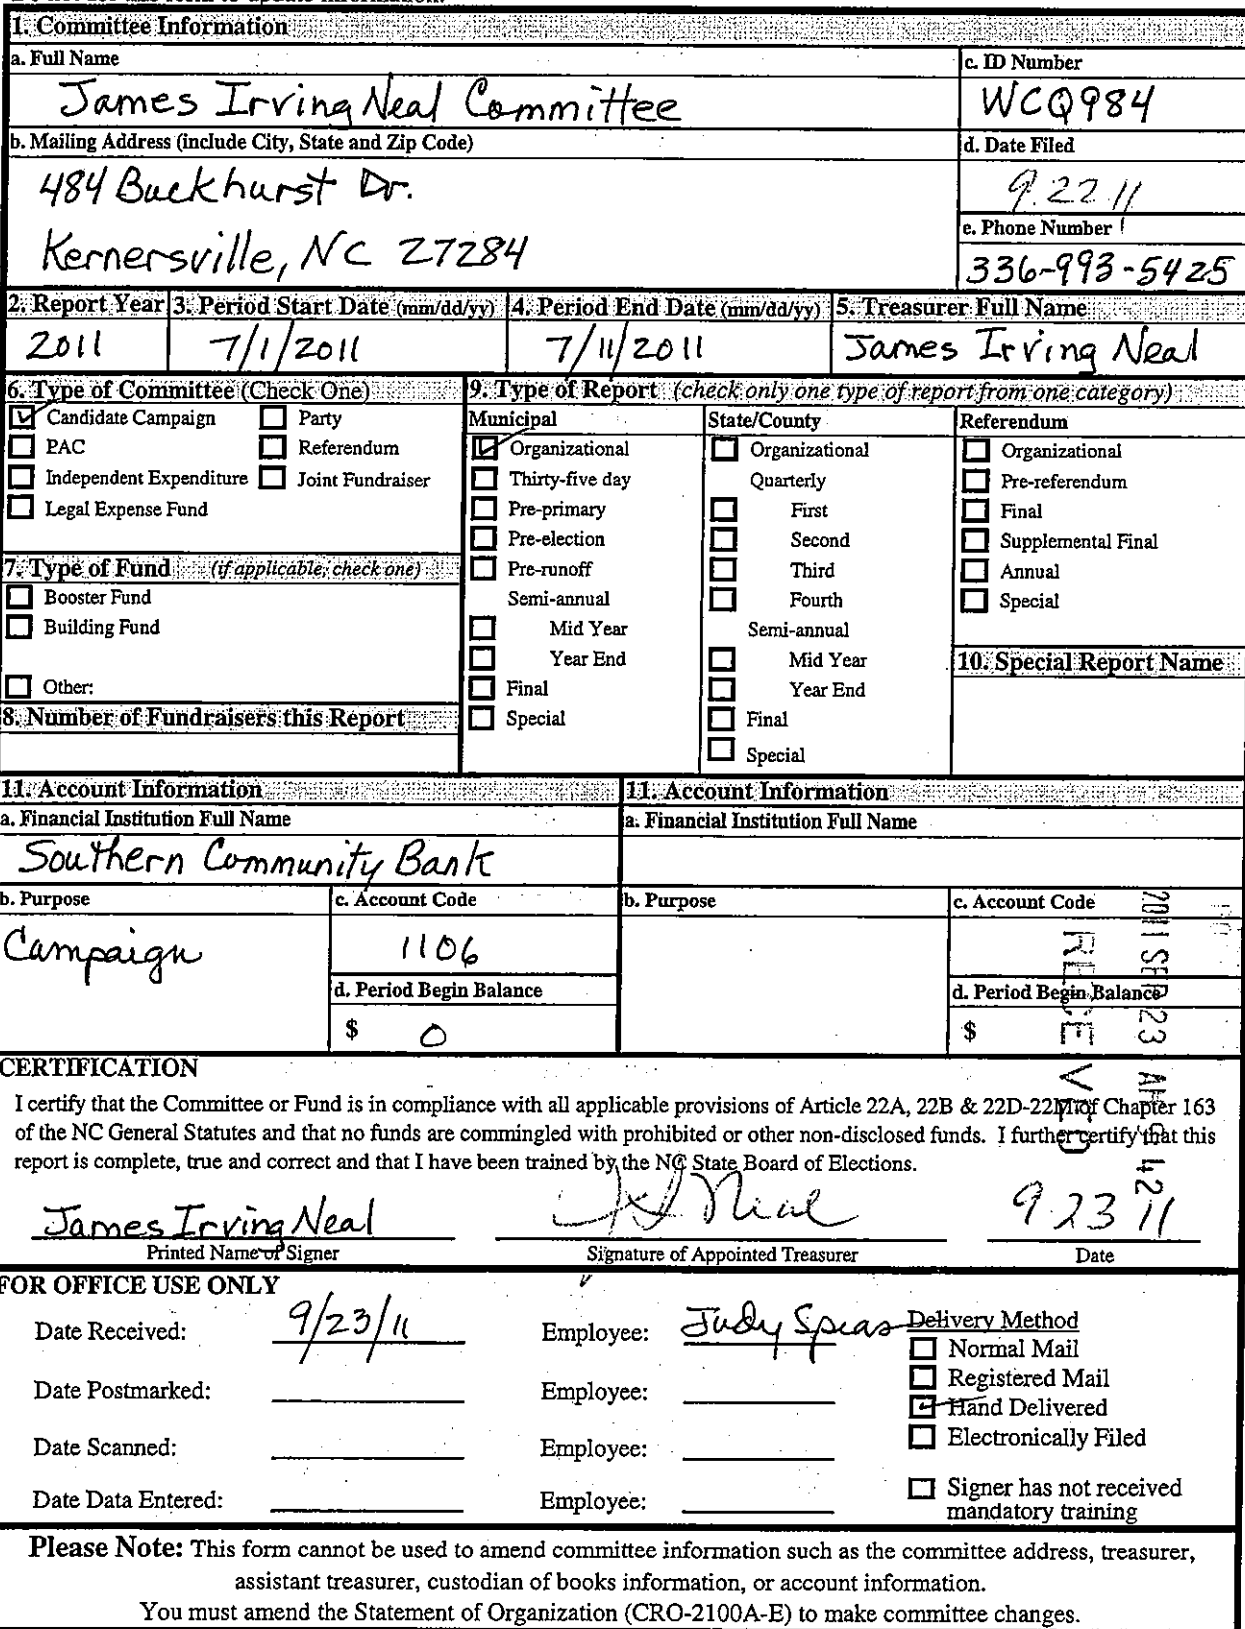 1. Committee Information
a. Full Name
c. ID Number
James Irving Neal Committee
WCQ984
b. Mailing Address (include City, State and Zip Code)
d. Date Filed
484 Buckhurst Dr.
9.22.11
e. Phone Number
Kernersville, NC 27284
336-993-5425
2. Report Year 3. Period Start Date (mm/dd/yy) 4. Period End Date (mm/dd/yy) 5. Treasurer Full Name
2011 7/1/2011 7/11/2011 James Irving Neal
6. Type of Committee (Check One)
Candidate Campaign Party
PAC Referendum
Independent Expenditure Joint Fundraiser
Legal Expense Fund
7. Type of Fund (if applicable, check one)
Booster Fund
Building Fund
Other:
8. Number of Fundraisers this Report
9. Type of Report (check only one type of report from one category)
Municipal
Organizational
Thirty-five day
Pre-primary
Pre-election
Pre-runoff
Semi-annual
Mid Year
Year End
Final
Special
State/County
Organizational
Quarterly
First
Second
Third
Fourth
Semi-annual
Mid Year
Year End
Final
Special
Referendum
Organizational
Pre-referendum
Final
Supplemental Final
Annual
Special
10. Special Report Name
11. Account Information
a. Financial Institution Full Name
Southern Community Bank
b. Purpose
Campaign
c. Account Code
1106
d. Period Begin Balance
$ 0
11. Account Information
a. Financial Institution Full Name
b. Purpose
c. Account Code
d. Period Begin Balance
$
RECEIVED
2011 SEP 23
CERTIFICATION
I certify that the Committee or Fund is in compliance with all applicable provisions of Article 22A, 22B & 22D-22M of Chapter 163
of the NC General Statutes and that no funds are commingled with prohibited or other non-disclosed funds. I further certify that this
report is complete, true and correct and that I have been trained by the NC State Board of Elections.
James Irving Neal
Neal
9.23.11
Printed Name of Signer
Signature of Appointed Treasurer
Date
FOR OFFICE USE ONLY
Date Received: 9/23/11 Employee: Judy Speas
Date Postmarked: Employee:
Date Scanned: Employee:
Date Data Entered: Employee:
Delivery Method
Normal Mail
Registered Mail
Hand Delivered
Electronically Filed
Signer has not received
mandatory training
Please Note: This form cannot be used to amend committee information such as the committee address, treasurer,
assistant treasurer, custodian of books information, or account information.
You must amend the Statement of Organization (CRO-2100A-E) to make committee changes.